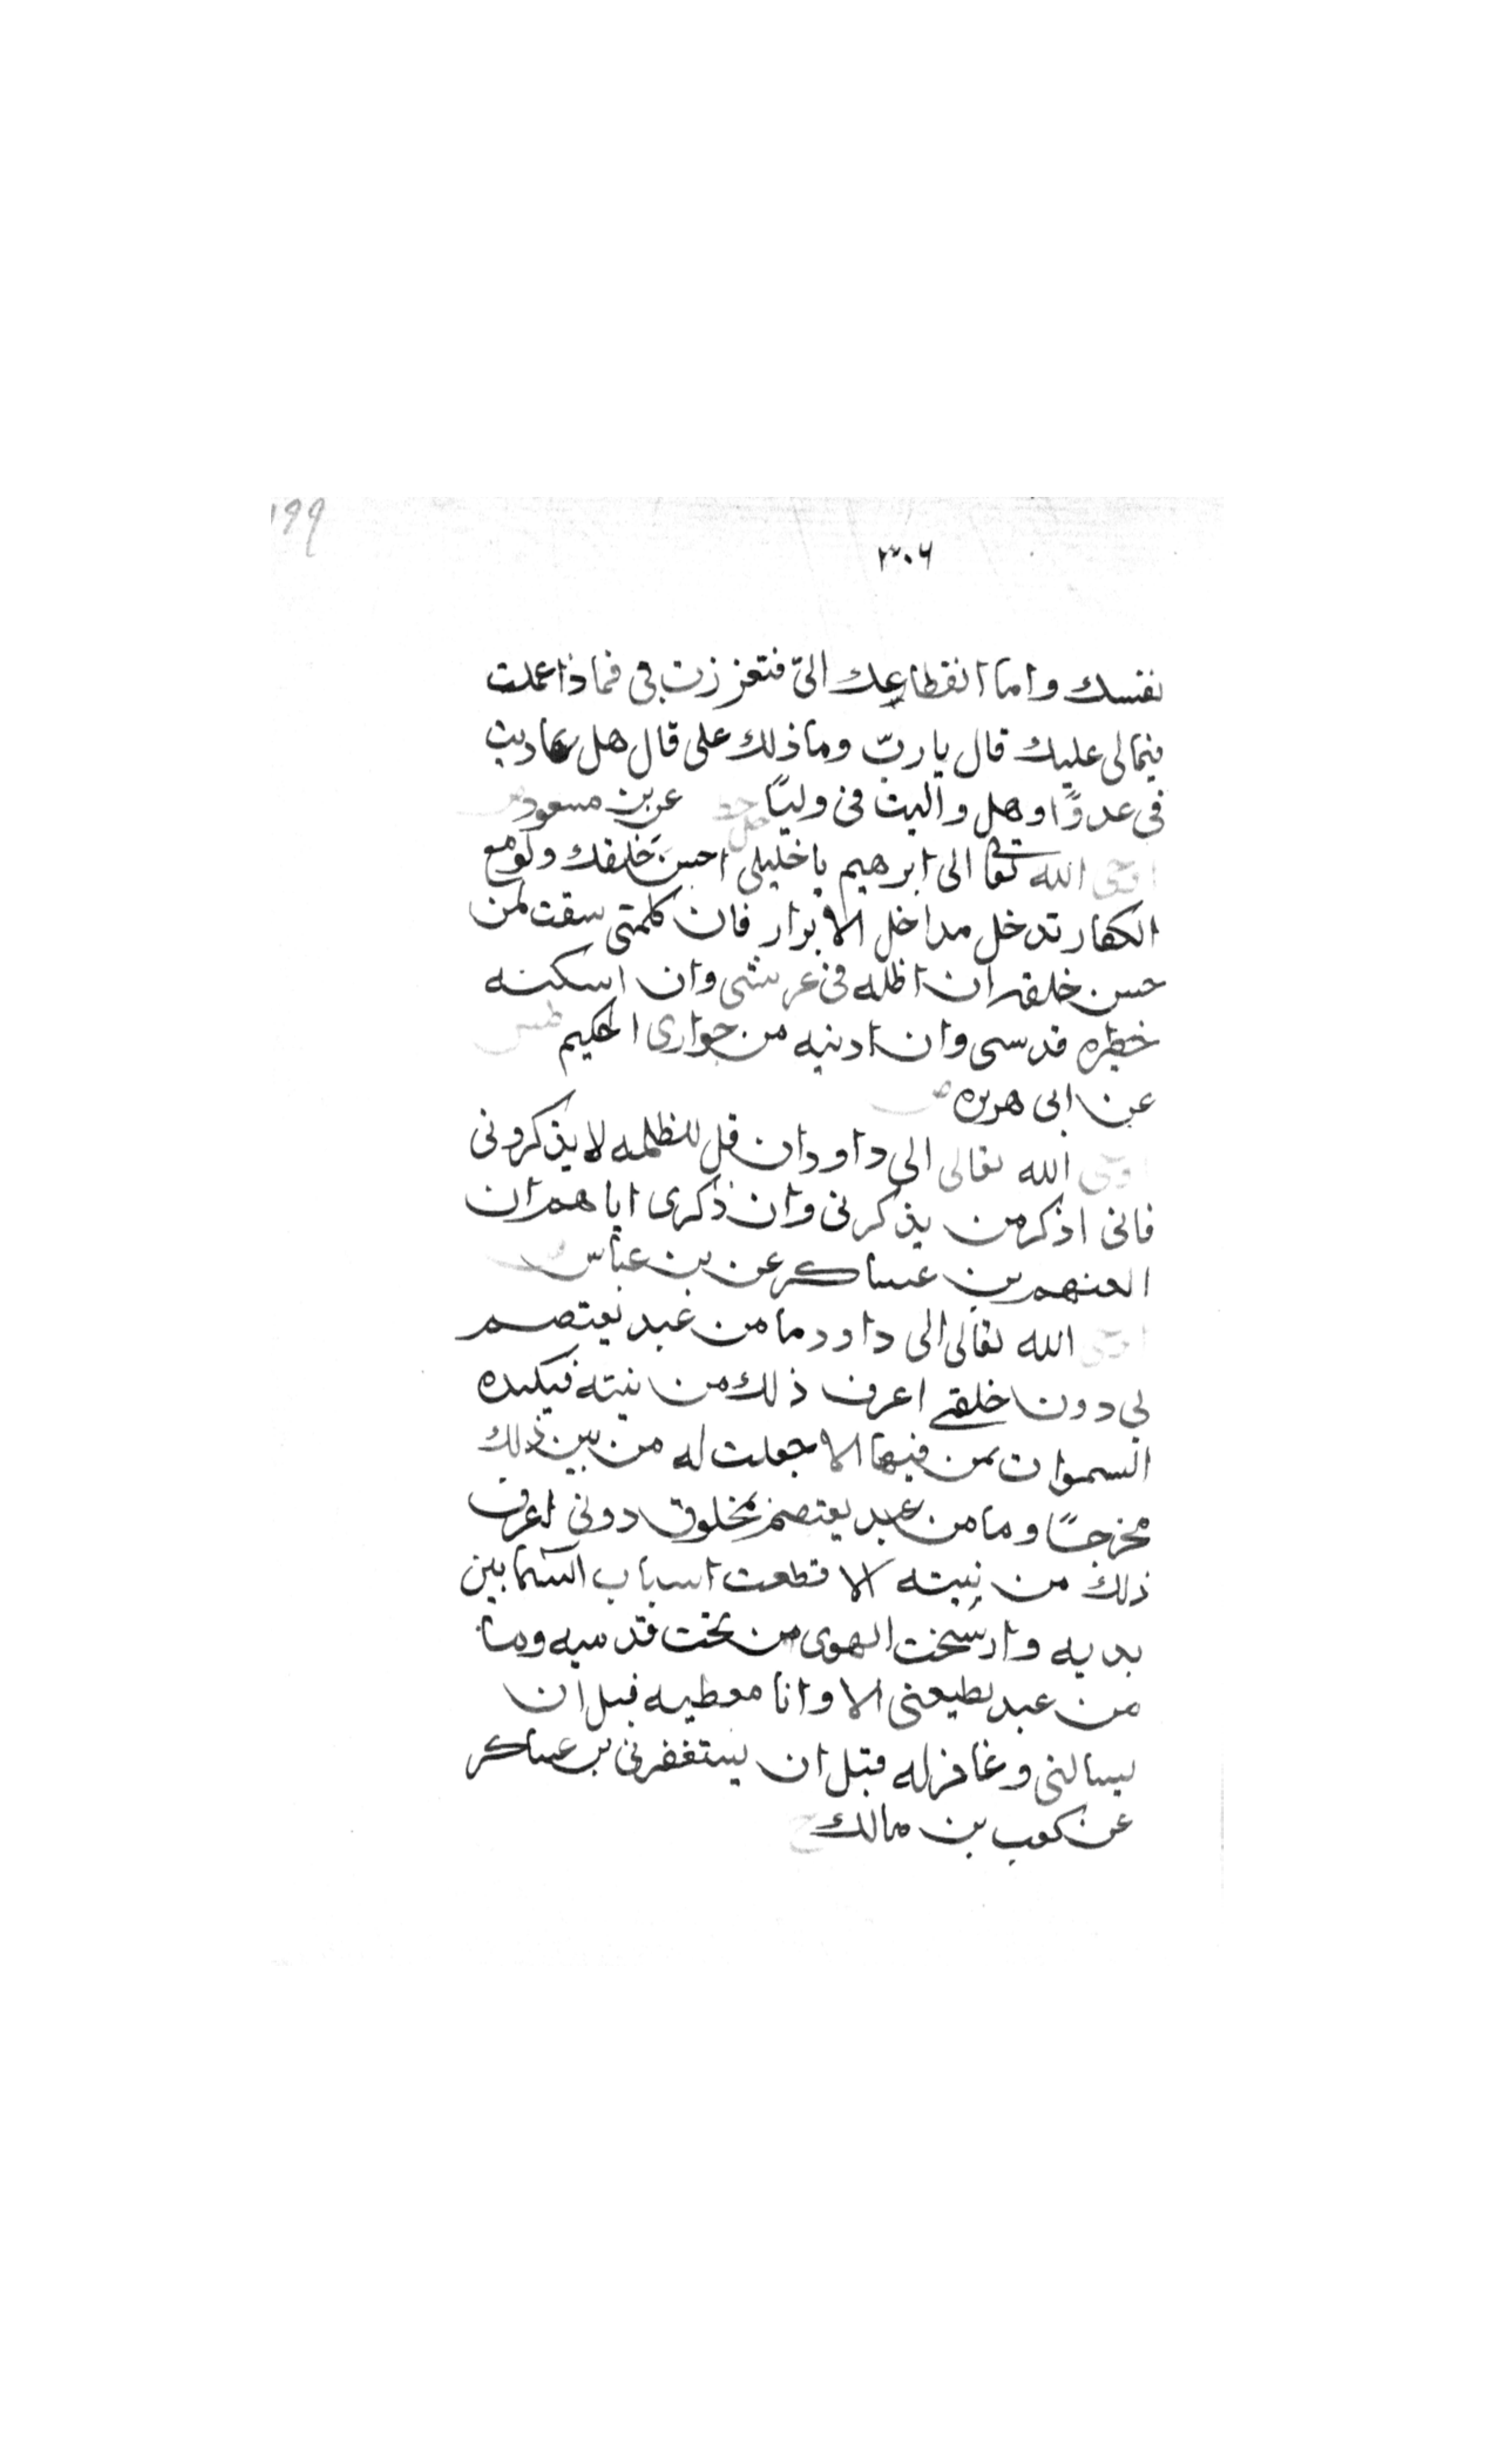 199
٣٠٦
نفسك واما انقطاعك الىّ فتعززت بى فماذا عملت
فيمالى عليك قال يا ربّ وماذلك على قال هل عاديت
فى عدوًّا وهل واليت فى وليًّا حل خط عن بن مسعود
اوحى الله تعا الى ابرهيم يا خليلى احسن خلقك ولو مع
الكفار تدخل مداخل الابرار فان كلمتى سبقت لمن
حسن خلقه ان اظله فى عرشى وان اسكنه
خظيره قدسى وان ادنيه من جوارى الحكيم طس
عن ابى هريره
اوحى الله تعالى الى داود ان قل للظلمه لا يذكرونى
فانى اذكر من يذكرنى وان ذكرى اياهم ان
العنهم بن عساكر عن بن عباس
اوحى الله تعالى الى داود ما من عبد يعتصم
بى دون خلقى اعرف ذلك من نيته فيكيده
السموات بمن فيها الا جعلت له من بين ذلك
مخرجًا وما من عبد يعتصم بمخلوق دونى اعرف
ذلك من نيته الا قطعت اسباب السما بين
يديه وارسخت الهوى من تحت قدميه وما
من عبد يطيعنى الا وانا معطيه قبل ان
يسالنى وغافر له قبل ان يستغفرنى بن عساكر
عن كعب بن مالك